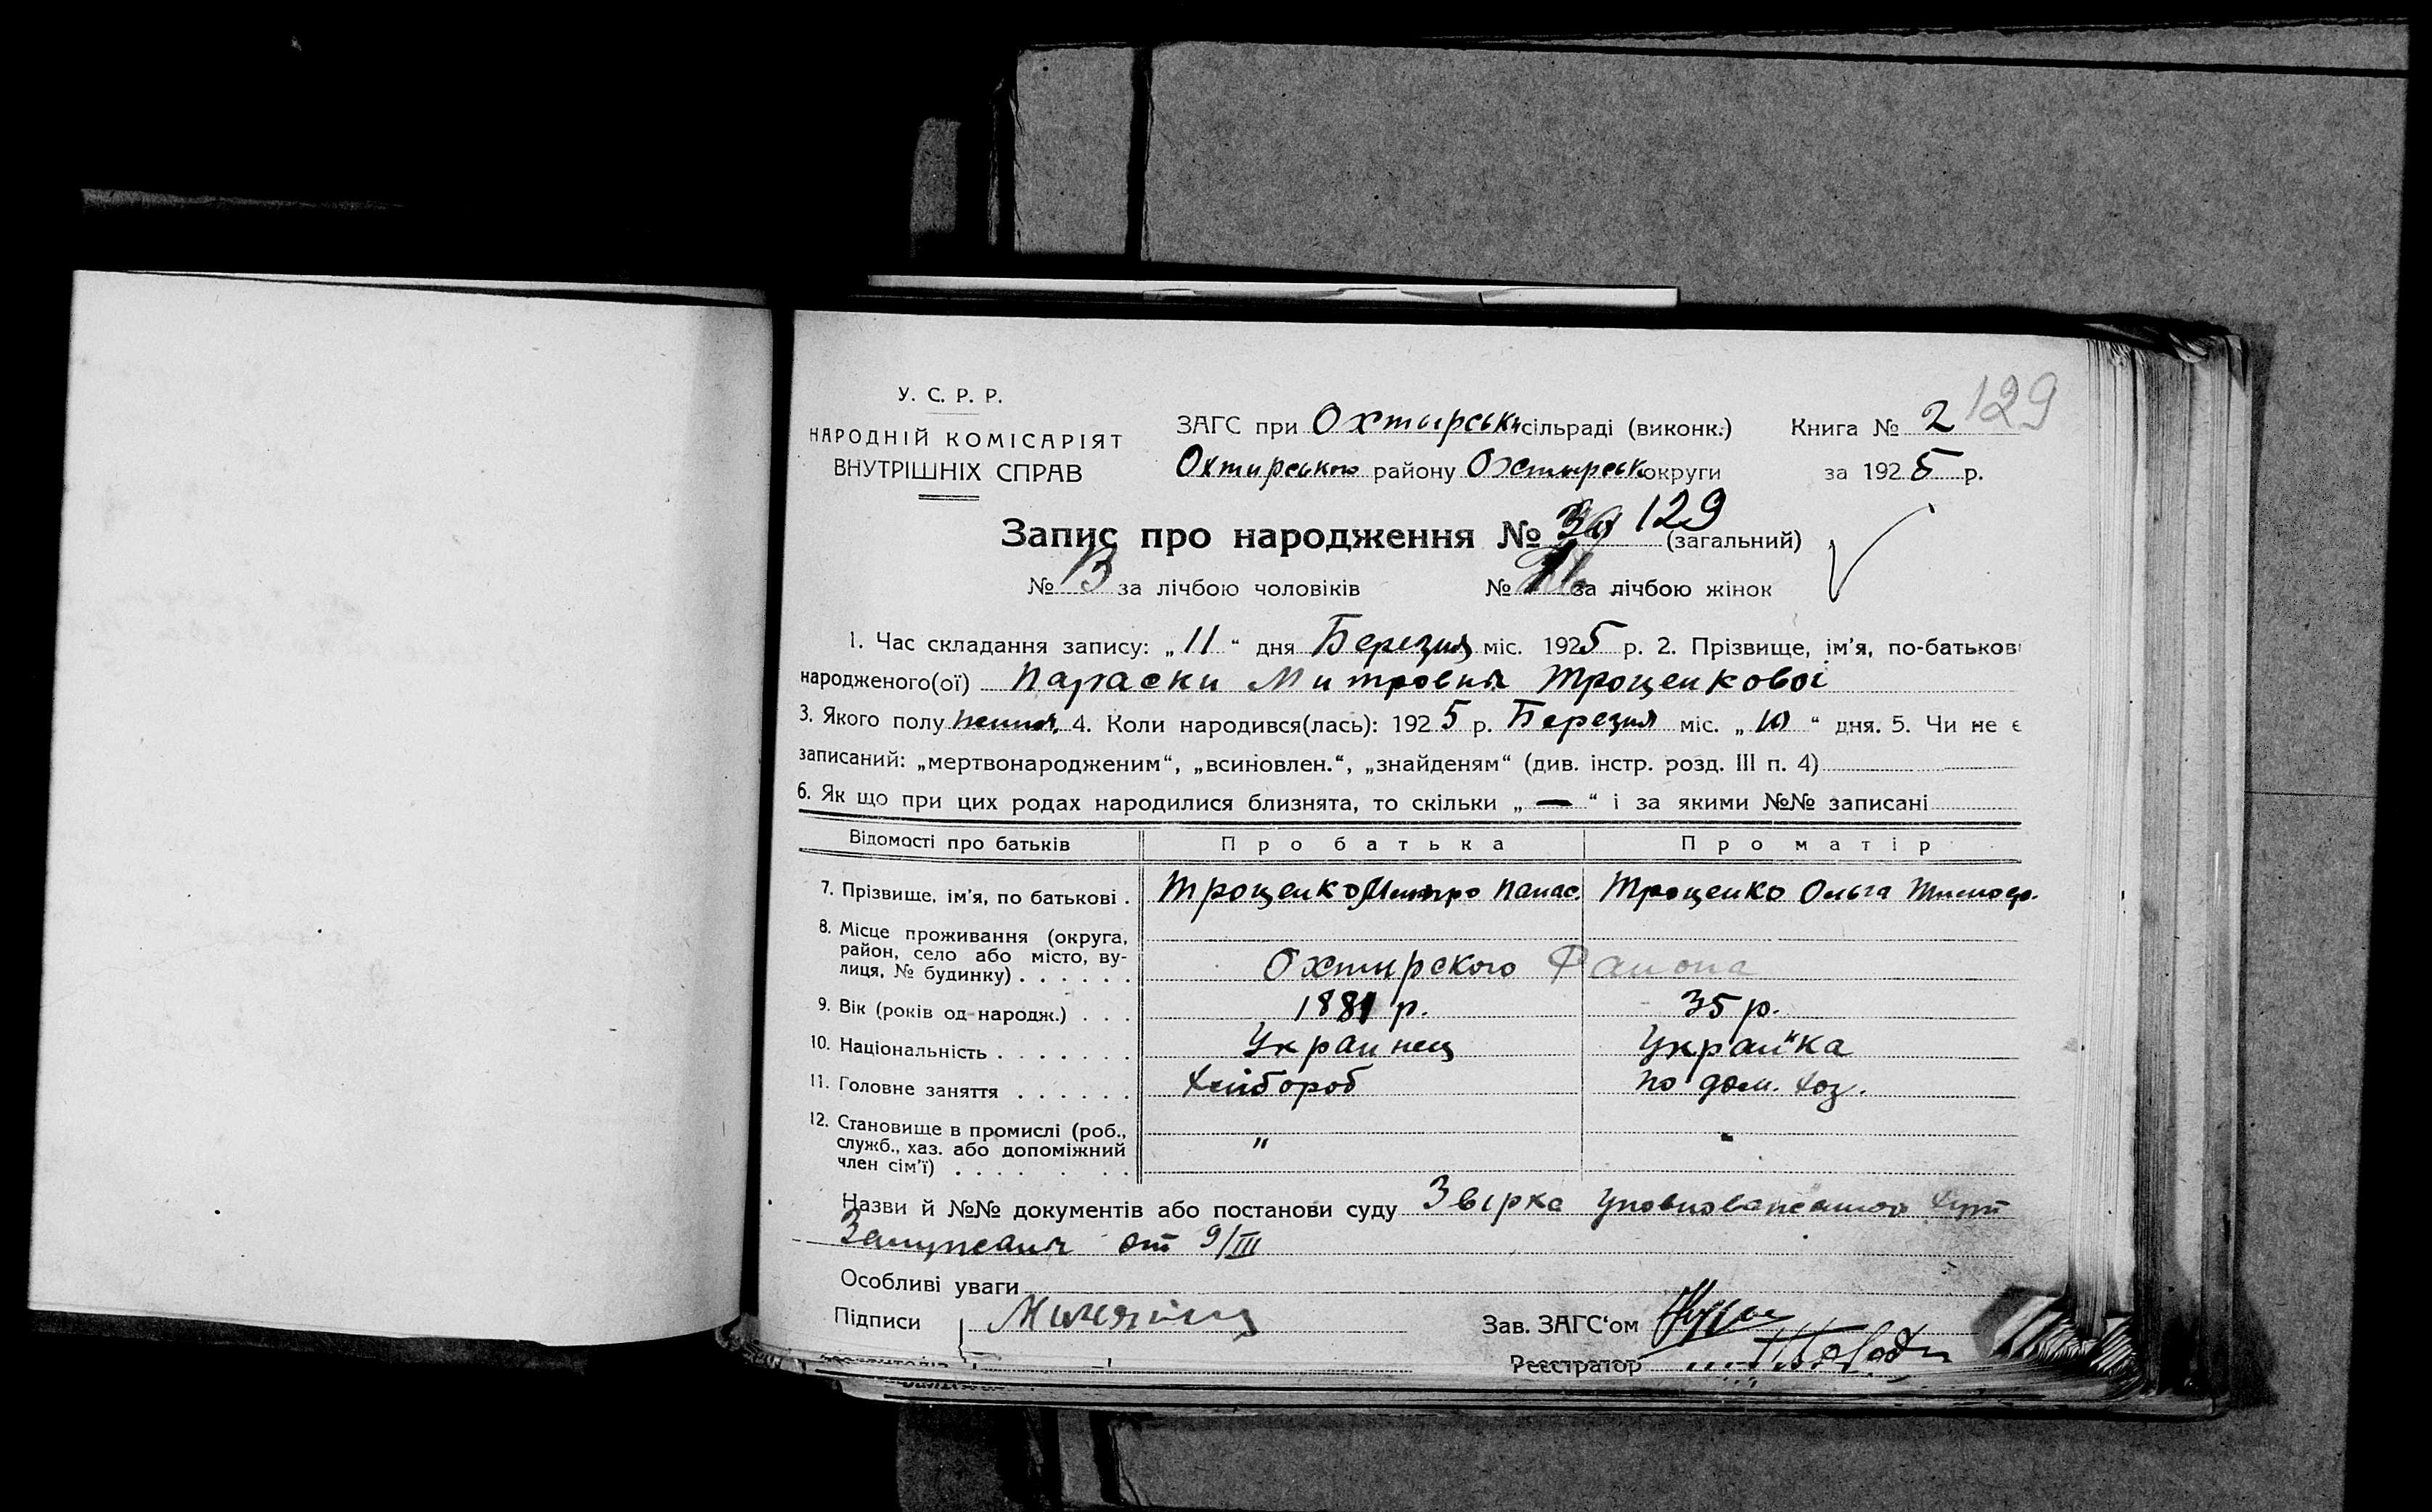 129
У. С. Р. Р.
НАРОДНІЙ КОМІСАРІЯТ
ВНУТРІШНІХ СПРАВ
ЗАГС при Охтирськ сільраді (виконк.) Книга № 2
Охтирського району Охтирськ округи за 1925 р.
Запис про народження № 129 (загальний)
№ за лічбою чоловіків № за лічбою жінок
1. Час складання запису: „ 11 “ дня Березня міс. 1925 р. 2. Прізвище, ім'я, по-батькові
народженого(ої) Параски Митровня Троценкової
3. Якого полу 4. Коли народився(лась): 1925 р. Березня міс. „ 10 “ дня. 5. Чи не є
записаний: „мертвонародженим“, „всиновлен.“, „знайденям“ (див. інстр. розд. III п. 4)
6. Як що при цих родах народилися близнята, то скільки „ — “ і за якими №№ записані
Відомості про батьків Про батька Про матір
7. Прізвище, ім'я, по батькові . Троценко Митро Панас. Троценко Ольга Тимоф.
8. Місце проживання (округа,
район, село або місто, ву-
лиця, № будинку) . . . . . . Охтирского Району
9. Вік (років од народж.) . . . 1881 р. 35 р.
10. Національність . . . . . . . Украинец Украинка
11. Головне заняття . . . . . . Хлібороб по дом. хоз.
12. Становище в промислі (роб.,
служб., хаз. або допоміжний
член сім'ї) . . . . . . . " "
Назви й №№ документів або постанови суду Звірка уповноваженого хут
от 9/III
Особливі уваги
Підписи Зав. ЗАГС‘ом
Реєстратор